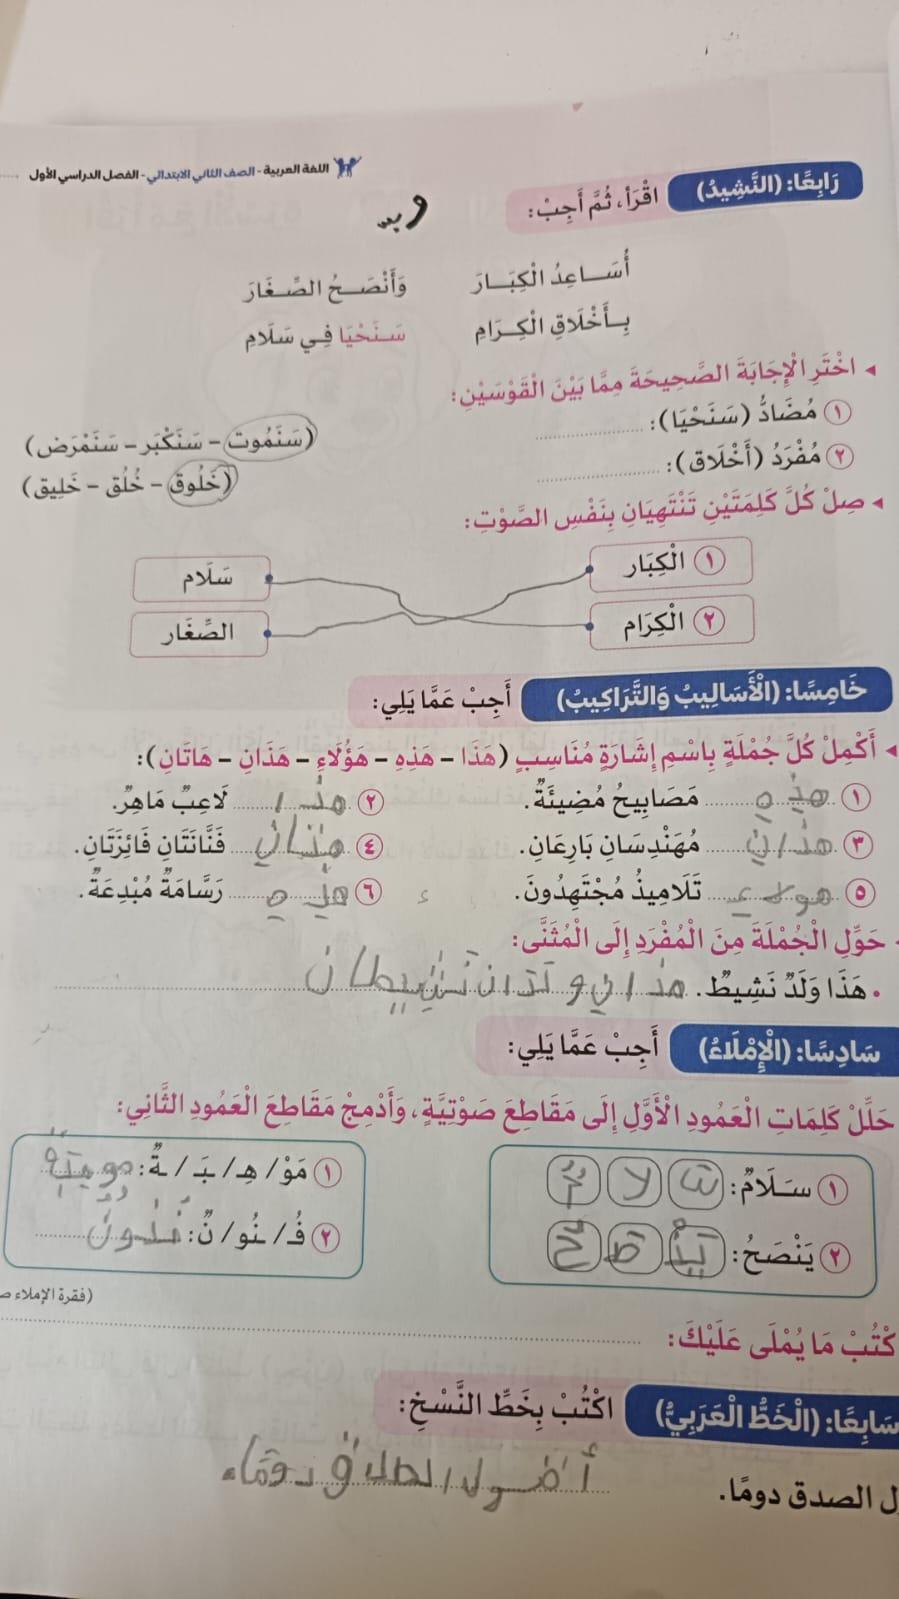 اللغة العربية - الصف الثاني الابتدائي - الفصل الدراسي الأول
رَابِعًا: (النَّشِيدُ) اقْرَأْ، ثُمَّ أَجِبْ:
أُسَـاعِدُ الْكِبَـارَ وَأَنْصَـحُ الصِّغَارَ
بِـأَخْلَاقِ الْكِـرَامِ سَـنَحْيَا فِـي سَلَامِ
◂ اخْتَرِ الْإِجَابَةَ الصَّحِيحَةَ مِمَّا بَيْنَ الْقَوْسَيْنِ:
١ مُضَادُّ (سَنَحْيَا): (سَنَمُوت - سَنَكْبَر - سَنَمْرَض)
٢ مُفْرَدُ (أَخْلَاق): (خَلُوق - خُلُق - خَلِيق)
◂ صِلْ كُلَّ كَلِمَتَيْنِ تَنْتَهِيَانِ بِنَفْسِ الصَّوْتِ:
١ الْكِبَار سَلَام
٢ الْكِرَام الصِّغَار
خَامِسًا: (الْأَسَالِيبُ وَالتَّرَاكِيبُ) أَجِبْ عَمَّا يَلِي:
◂ أَكْمِلْ كُلَّ جُمْلَةٍ بِاسْمِ إِشَارَةٍ مُنَاسِبٍ (هَذَا - هَذِهِ - هَؤُلَاءِ - هَذَانِ - هَاتَانِ):
١ هذه مَصَابِيحُ مُضِيئَةٌ. ٢ هذا لَاعِبٌ مَاهِرٌ.
٣ هذان مُهَنْدِسَانِ بَارِعَانِ. ٤ هتان فَنَّانَتَانِ فَائِزَتَانِ.
٥ هولاء تَلَامِيذُ مُجْتَهِدُونَ. ٦ هذه رَسَّامَةٌ مُبْدِعَةٌ.
حَوِّلِ الْجُمْلَةَ مِنَ الْمُفْرَدِ إِلَى الْمُثَنَّى:
• هَذَا وَلَدٌ نَشِيطٌ. هذان ولدان نشيطان
سَادِسًا: (الْإِمْلَاءُ) أَجِبْ عَمَّا يَلِي:
حَلِّلْ كَلِمَاتِ الْعَمُودِ الْأَوَّلِ إِلَى مَقَاطِعَ صَوْتِيَّةٍ، وَأَدْمِجْ مَقَاطِعَ الْعَمُودِ الثَّانِي:
١ سَلَامٌ: لا مٌ ١ مَوْ/ هِـ/ بَـ/ ـةٌ: موهبة
٢ يَنْصَحُ: ينْ صَ حُ ٢ فُـ/ نُو/ نٌ: فُنُونٌ
(فقرة الإملاء
كْتُبْ مَا يُمْلَى عَلَيْكَ:
سَابِعًا: (الْخَطُّ الْعَرَبِيُّ) اكْتُبْ بِخَطِّ النَّسْخِ:
ل الصدق دومًا.